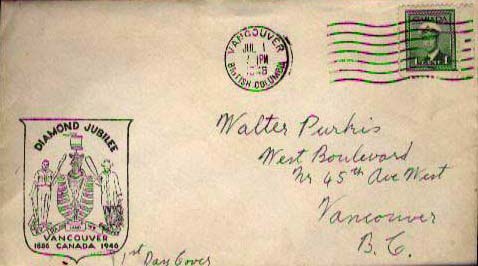 VANCOUVER
JUL 1
PM
1946
BRITISH COLUMBIA
CANADA
1 CENT 1
Walter Purkis
West Boulevard
Nr 45th Ave West
Vancouver
B. C.
DIAMOND JUBILEE
VANCOUVER
1886 CANADA 1946
1st Day Cover